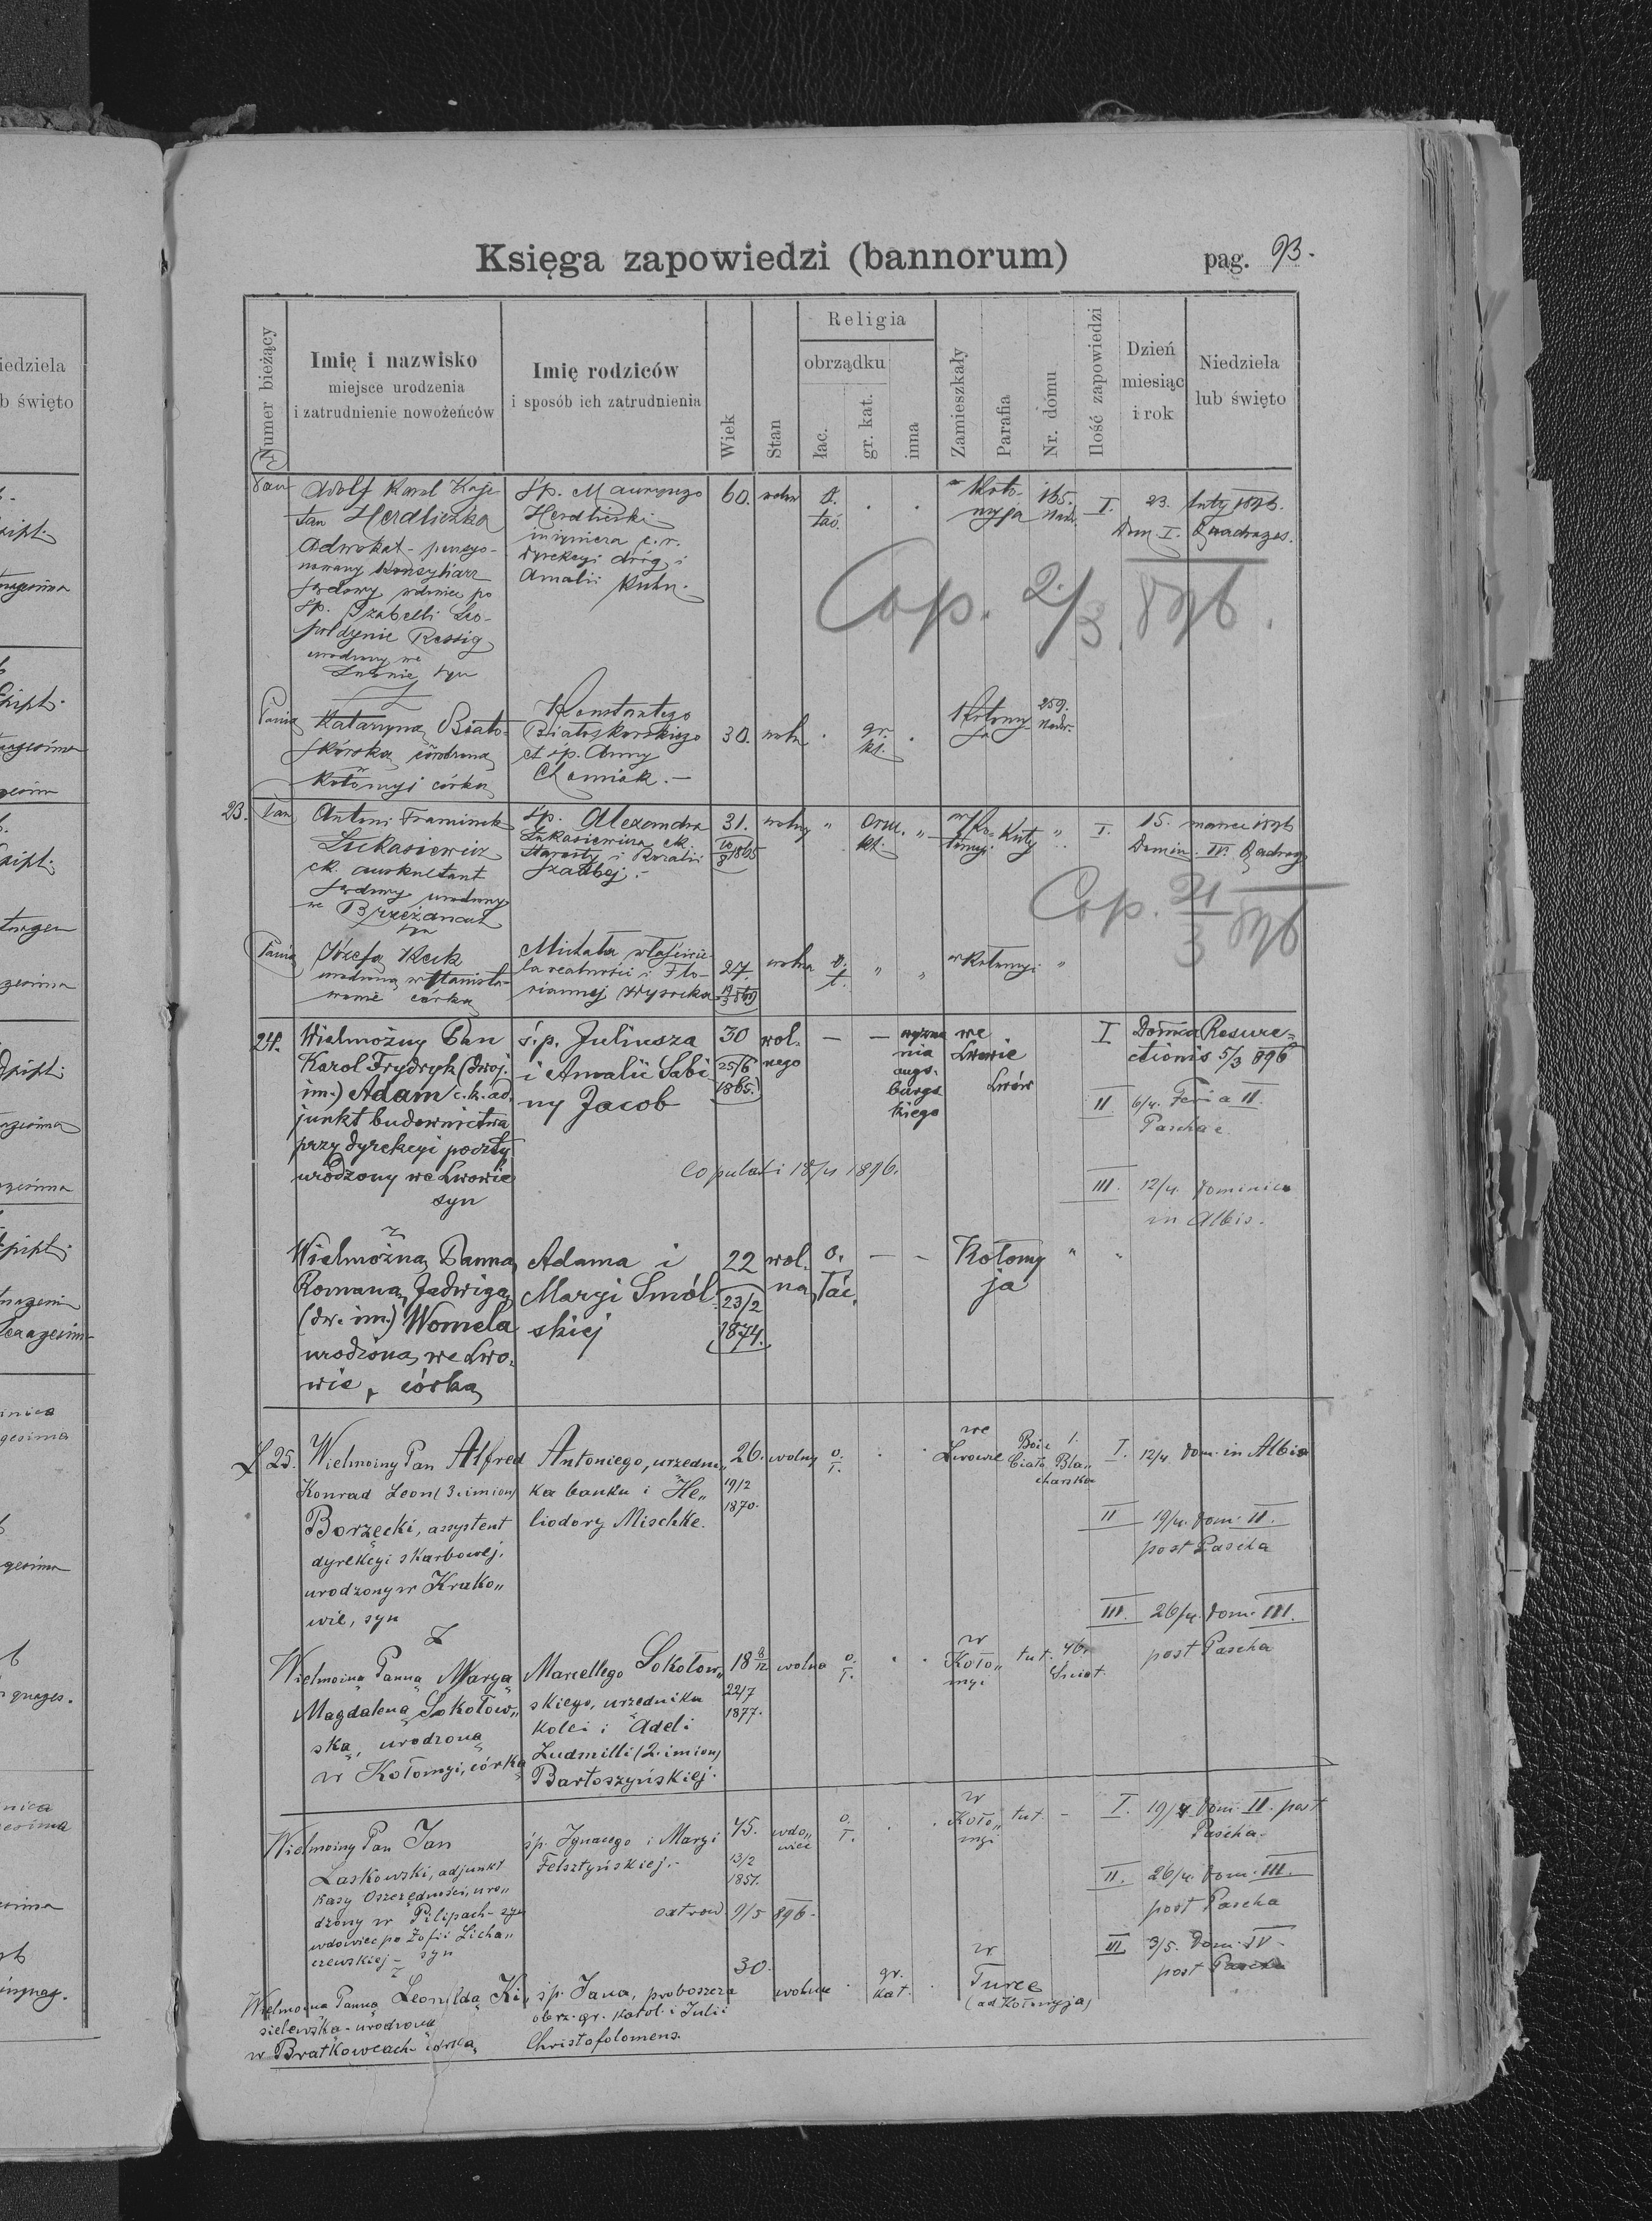 Księga zapowiedzi (bannorum)
pag. 93.
Numer bieżący
Imię i nazwisko
miejsce urodzenia
i zatrudnienie nowożeńców
Imię rodziców
i sposób ich zatrudnienia
Wiek
Stan
Religia
obrządku
łac.
gr. kat.
inna
Zamieszkały
Parafia
Nr. dómu
Ilość zapowiedzi
Dzień
miesiąc
i rok
Niedziela
lub święto
Pan
Adolf Karol Kaje-
tan Herdliczka
Adwokat - pensyo-
nowany Konsyliarz
sądowy wdowiec po
śp. Izabelli Leo-
poldynie Rossig
urodzony we
syn
śp. Maurycego
Herdliczki
inżyniera c. r.
dyrekcyi dróg i
Amalii Kuhn.
60.
wdow
o.
łac.
w Koło-
myja
185.
Nadw.
I.
23. luty 1896.
Dom. I. Quadrages.
Cop. 2/3 896.
z
Panną
Katarzyną Biało-
skórską urodzoną
w
Kołomyi córką
Konstantego
Białoskorskiego
et śp. Anny
Chomiak. -
30.
wolna
gr.
kt.
Kołomy-
ja
259.
Nadw.
23.
Pan
Antoni Franciszek
Łukasiewicz
ck. auskultant
sądowy urodzony
we Brzeżanach
syn
śp. Alexandra
Łukasiewicza ck
starosty i Rozalii
31.
1865
wolny
orm.
kt.
w Ko-
łomyi.
Kuty
I.
15. marca 1896
Domin. IV. Qadrag
Cop. 21/3 896
Panną
Józefą Keck
urodzoną w Stanisła-
wowie córką
Michała właścicie-
la realności i Flo-
riannej Wysocka
27.
wolna
o.
ł.
w Kołomyi
24.
Wielmożny Pan
Karol Frydryk (dwoj.
im.) Adam c. k. ad.
junkt budownictwa
przy dyrekcyi poczty
urodzony we Lwowie
syn
ś. p. Juliusza
i Amalii Sabi
ny Jacob
30
25/6
1865.
wol.
nego
wyzna
nia
augs.
burgs
kiego
we
Lwowie
Lwów
I
Domca Resure=
ctionis 5/3 896
II
6/4. Feria II.
Paschae
III.
12/4. Dominica
in Albis.
Copulati 18/4 1896.
z
Wielmożną Panną
Romaną Jadwigą
(dw. im.) Womela
urodzoną we Lwo.
wie, córką
Adama i
Maryi Smól
skiej
22
23/2
1874.
wol.
na
o.
łac.
Kołomy
ja
L 25.
Wielmożny Pan Alfred
Konrad Leon (3. imion)
Borzęcki, assystent
dyrekcyi skarbowej,
urodzony w Krako„
wie, syn
Antoniego, urzędni„
ka banku i He„
liodory Mischke.
26.
19/2
1870.
wolny
o.
ł.
we
Lwowie
Boże
Ciało
1.
Bla„
charska
I.
12/4. Dom. in Albis
II
19/4. Dom. II.
post Pascha
III.
26/4. Dom. III.
post Pascha
Z
Wielmożną Panną Maryą
Magdaleną Sokołow„
ską, urodzoną
w Kołomyi, córką
Marcellego Sokołow„
skiego, urzędnika
kolei i Adeli
Ludmilli (2. imion)
Bartoszyńskiej.
18 8/12
22/7
1877.
wolna
o.
ł.
w
Koło„
myi
tut.
46.
Wielmożny Pan Jan
Laskowski, adjunkt
Kasy Oszczędności, uro„
dzony w Pilipach - syn
wdowiec po Zofii Licha„
czewskiej - syn
śp. Ignacego i Maryi
Felsztyńskiej. -
45.
13/2
1851.
wdo„
wiec
o.
ł.
w
Koło„
myi
tut.
-
I.
19/4. Dom. II. post
Pascha.
II.
26/4. Dom. III.
post Pascha
III
3/5. Dom. IV.
post Pascha
9/5 896.
z
Wielmożną Panną Leonyldą Ki„
sielewską - urodzoną
w Bratkowcach - córką,
śp. Jana, proboszcza
obrz. gr. katol. i Julii
30.
wolna
gr.
kat.
w
Turce
(ad Kołomyja)